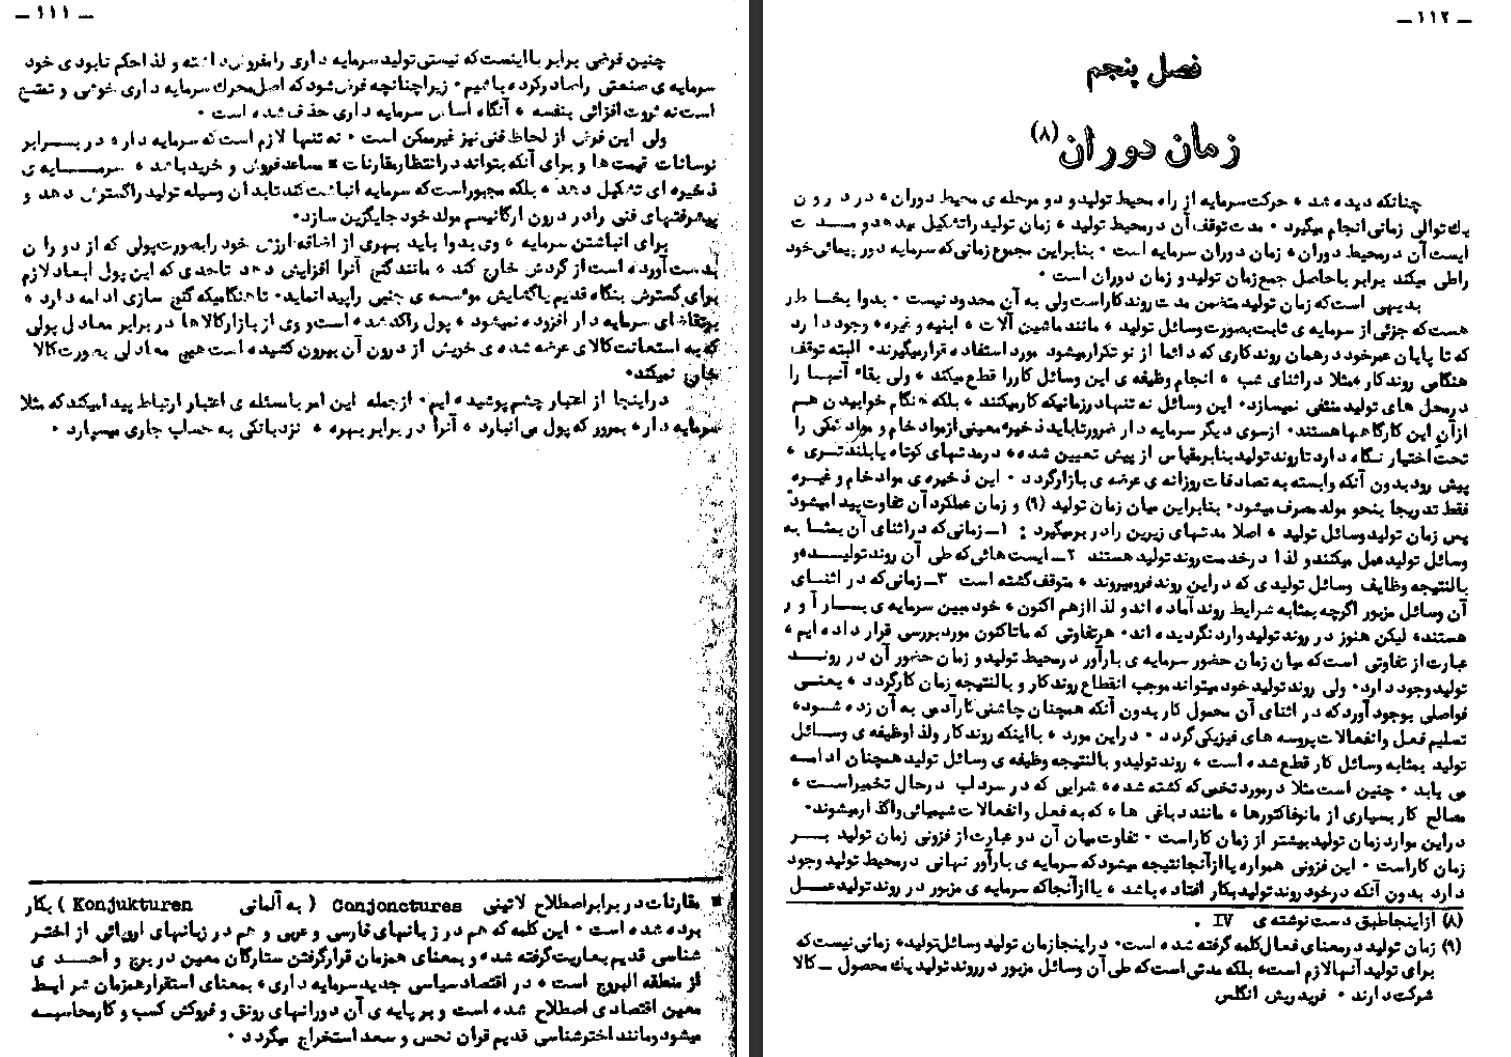 ــ ۱۱۱ ــ
چنین فرضی برابر با اینست که نیستی تولید سرمایه داری را مفروض داشته و لذا حکم نابودی خود
سرمایه ی صنعتی را صادر کرده باشیم۰ زیرا چنانچه فرض شود که اصل محرک سرمایه داری خوشی و تمتع
است نه ثروت افزائی بنفسه ، آنگاه اساس سرمایه داری حذف شده است ۰
ولی این فرض از لحاظ فنی نیز غیرممکن است ۰ نه تنها لازم است که سرمایه دار، در بــرابر
نوسانات قیمت ها و برای آنکه بتواند در انتظار مقارنات * مساعد فروش و خرید باشد ، سرمــایه ی
ذخیره ای تشکیل دهد ، بلکه مجبور است که سرمایه انباشت کند تا بدان وسیله تولید را گسترش دهد و
پیشرفتهای فنی را در درون ارگانیسم مولد خود جایگزین سازد۰
برای انباشتن سرمایه ، وی بدوا باید بهری از اضافه ارزش خود را بصورت پولی که از دوران
بدست آورده است از گردش خارج کند ، مانند گنج آنرا افزایش دهد تا حدی که این پول ابعاد لازم
برای گسترش بنگاه قدیم یا گشایش موٴسسه ی جنبی را پیدا نماید۰ تا هنگامیکه گنج سازی ادامه دارد ،
برتقاضای سرمایه دار افزوده نمیشود ، پول راکد شده است و وی از بازار کالاها در برابر معادل پولی
که به استعانت کالای عرضه شده ی خویش از درون آن بیرون کشیده است هیچ معادلی بصورت کالا
خارج نمیکند۰
در اینجا از اعتبار چشم پوشیده ایم۰ از جمله این امر با مسئله ی اعتبار ارتباط پیدا میکند که مثلا
سرمایه دار، بمرور که پول می انبارد ، آنرا در برابر بهره ، نزد بانکی به حساب جاری میسپارد ۰
* مقارنات در برابر اصطلاح لاتینی Conjonctures ( به آلمانی Konjukturen ) بکار
برده شده است ۰ این کلمه که هم در زبانهای فارسی و عربی و هم در زبانهای اروپائی از اختر
شناسی قدیم بعاریت گرفته شده و بمعنای همزمان قرار گرفتن ستارگان معین در برج واحــدی
از منطقه البروج است ، در اقتصاد سیاسی جدید سرمایه داری، بمعنای استقرار همزمان شرایط
معین اقتصادی اصطلاح شده است و بر پایه ی آن دورانهای رونق و فروکش کسب و کار محاسبــه
میشود و مانند اخترشناسی قدیم قران نحس و سعد استخراج میگردد ۰
ــ ۱۱۲ ــ
فصل پنجم
زمان دوران(۸)
چنانکه دیده شد ، حرکت سرمایه از راه محیط تولید و دو مرحله ی محیط دوران، در درون
یك توالی زمانی انجام میگیرد ۰ مدت توقف آن در محیط تولید ، زمان تولید را تشکیل میدهد و مــدت
ایست آن در محیط دوران، زمان دوران سرمایه است ۰ بنابراین مجموع زمانی که سرمایه دور پیمائی خود
را طی میکند برابر با حاصل جمع زمان تولید و زمان دوران است ۰
بدیهی است که زمان تولید متضمن مدت روند کار است ولی به آن محدود نیست ۰ بدوا بخاطر
هست که جزئی از سرمایه ی ثابت بصورت وسائل تولید ، مانند ماشین آلات ، ابنیه و غیره ، وجود دارد
که تا پایان عمر خود در همان روند کاری که دائما از نو تکرار میشود مورد استفاده قرار میگیرند۰ البته توقف
هنگامی روند کار ، مثلا در اثنای شب ، انجام وظیفه ی این وسائل کار را قطع میکند ، ولی بقاء آنهــا را
در محل های تولید منتفی نمیسازد۰ این وسائل نه تنها در زمانیکه کار میکنند ، بلکه هنگام خوابیدن هم
از آن این کارگاهها هستند۰ از سوی دیگر سرمایه دار ضرورتا باید ذخیره معینی از مواد خام و مواد کمکی را
تحت اختیار نگاه دارد تا روند تولید بنا بر مقیاس از پیش تعیین شده ، در مدتهای کوتاه یا بلند تــری ،
پیش رود بدون آنکه وابسته به تصادفات روزانه ی عرضه ی بازار گردد ۰ این ذخیره ی مواد خام و غیــره
فقط تدریجا بنحو مولد مصرف میشود۰ بنابراین میان زمان تولید (۹) و زمان عملکرد آن تفاوت پیدا میشود
پس زمان تولید وسائل تولید ، اصلا مدتهای زیرین را در بر میگیرد : ۱ــ زمانی که در اثنای آن بمثابه
وسائل تولید عمل میکنند و لذا در خدمت روند تولید هستند ۲ــ ایست هائی که طی آن روند تولیــد و
بالنتیجه وظایف وسائل تولیدی که در این روند فرو میروند ، متوقف گشته است ۳ــ زمانی که در اثنــای
آن وسائل مزبور اگرچه بمثابه شرایط روند آماده اند و لذا از هم اکنون ، خود مبین سرمایه ی بــارآور
هستند، لیکن هنوز در روند تولید وارد نگردیده اند۰ هر تفاوتی که ما تاکنون مورد بررسی قرار داده ایم ،
عبارت از تفاوتی است که میان زمان حضور سرمایه ی بارآور در محیط تولید و زمان حضور آن در رونــد
تولید وجود دارد۰ ولی روند تولید خود میتواند موجب انقطاع روند کار و بالنتیجه زمان کار گردد ، یعنــی
فواصلی بوجود آورد که در اثنای آن محمول کار بدون آنکه همچنان چاشنی کار آدمی به آن زده شــود،
تسلیم فعل و انفعالات پروسه های فیزیکی گردد ۰ در این مورد ، با اینکه روند کار و لذا وظیفه ی وســائل
تولید بمثابه وسائل کار قطع شده است ، روند تولید و بالنتیجه وظیفه ی وسائل تولید همچنان ادامــه
می یابد ۰ چنین است مثلا در مورد تخمی که کشته شده ، شرابی که در سرداب در حال تخمیر اســت ،
مصالح کار بسیاری از مانوفاکتورها ، مانند دباغی ها ، که به فعل و انفعالات شیمیائی واگذار میشوند۰
در این موارد زمان تولید بیشتر از زمان کار است ۰ تفاوت میان آن دو عبارت از فزونی زمان تولید بــر
زمان کار است ۰ این فزونی همواره یا از آنجا نتیجه میشود که سرمایه ی بارآور نهانی در محیط تولید وجود
دارد بدون آنکه در خود روند تولید بکار افتاده باشد ، یا از آنجا که سرمایه ی مزبور در روند تولید عمــل
(۸) از اینجا طبق دست نوشته ی IV ۰
(۹) زمان تولید در معنای فعال کلمه گرفته شده است۰ در اینجا زمان تولید وسائل تولید، زمانی نیست که
برای تولید آنها لازم است، بلکه مدتی است که طی آن وسائل مزبور در روند تولید یك محصول ــ کالا
شرکت دارند ۰ فریدریش انگلس